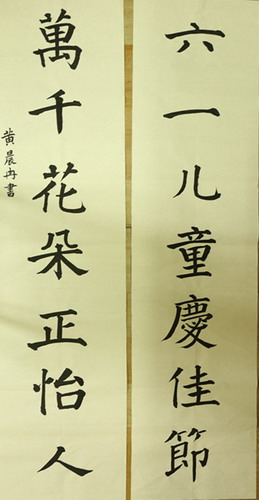 六一儿童慶佳節
萬千花朵正怡人
黄晨冉書